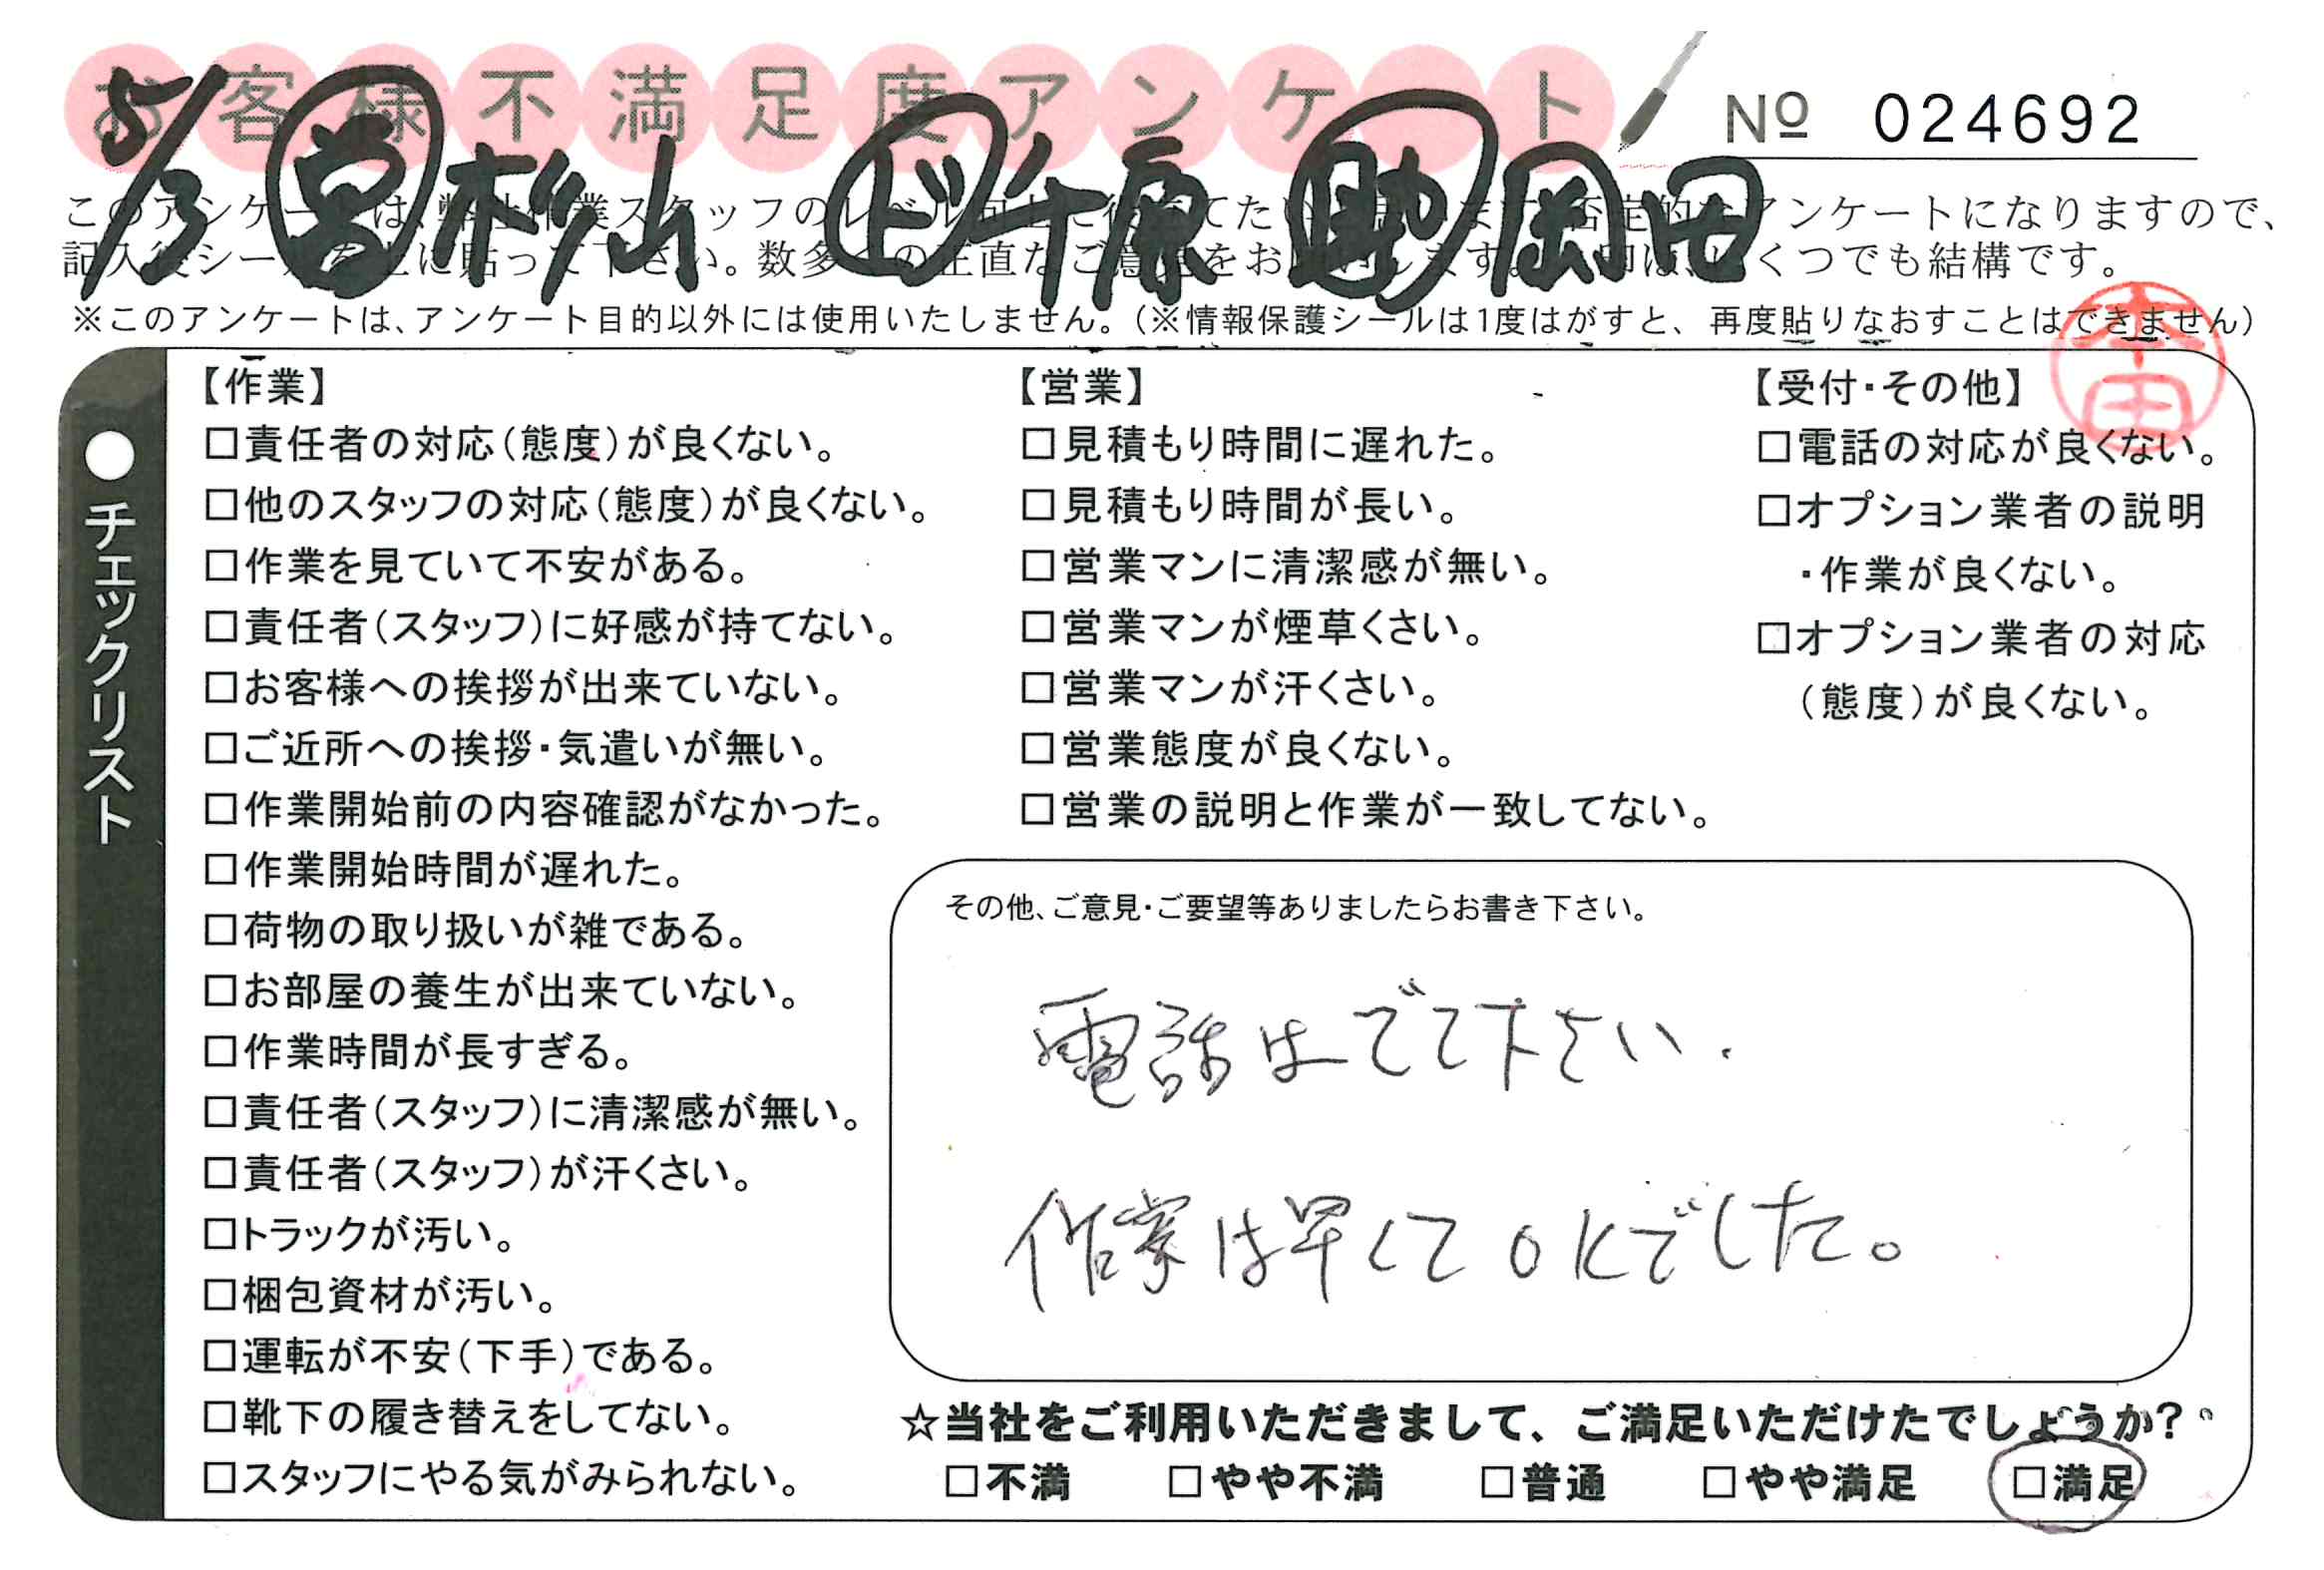 お客様不満足度アンケート
№ 024692
5/3 営 杉山 ド 千原 助 岡田
このアンケートは、弊社作業スタッフのレベル向上に役立てたいと思います。否定的なアンケートになりますので、
記入後シールを上に貼って下さい。数多くの正直なご意見をお願いします。✓印は、いくつでも結構です。
※このアンケートは、アンケート目的以外には使用いたしません。(※情報保護シールは1度はがすと、再度貼りなおすことはできません)
本田
●チェックリスト
【作業】
□責任者の対応(態度)が良くない。
□他のスタッフの対応(態度)が良くない。
□作業を見ていて不安がある。
□責任者(スタッフ)に好感が持てない。
□お客様への挨拶が出来ていない。
□ご近所への挨拶・気遣いが無い。
□作業開始前の内容確認がなかった。
□作業開始時間が遅れた。
□荷物の取り扱いが雑である。
□お部屋の養生が出来ていない。
□作業時間が長すぎる。
□責任者(スタッフ)に清潔感が無い。
□責任者(スタッフ)が汗くさい。
□トラックが汚い。
□梱包資材が汚い。
□運転が不安(下手)である。
□靴下の履き替えをしてない。
□スタッフにやる気がみられない。
【営業】
□見積もり時間に遅れた。
□見積もり時間が長い。
□営業マンに清潔感が無い。
□営業マンが煙草くさい。
□営業マンが汗くさい。
□営業態度が良くない。
□営業の説明と作業が一致してない。
【受付・その他】
□電話の対応が良くない。
□オプション業者の説明
・作業が良くない。
□オプション業者の対応
(態度)が良くない。
その他、ご意見・ご要望等ありましたらお書き下さい。
電話はでて下さい.
作業は早くてOKでした。
☆当社をご利用いただきまして、ご満足いただけたでしょうか?
□不満 □やや不満 □普通 □やや満足 □満足